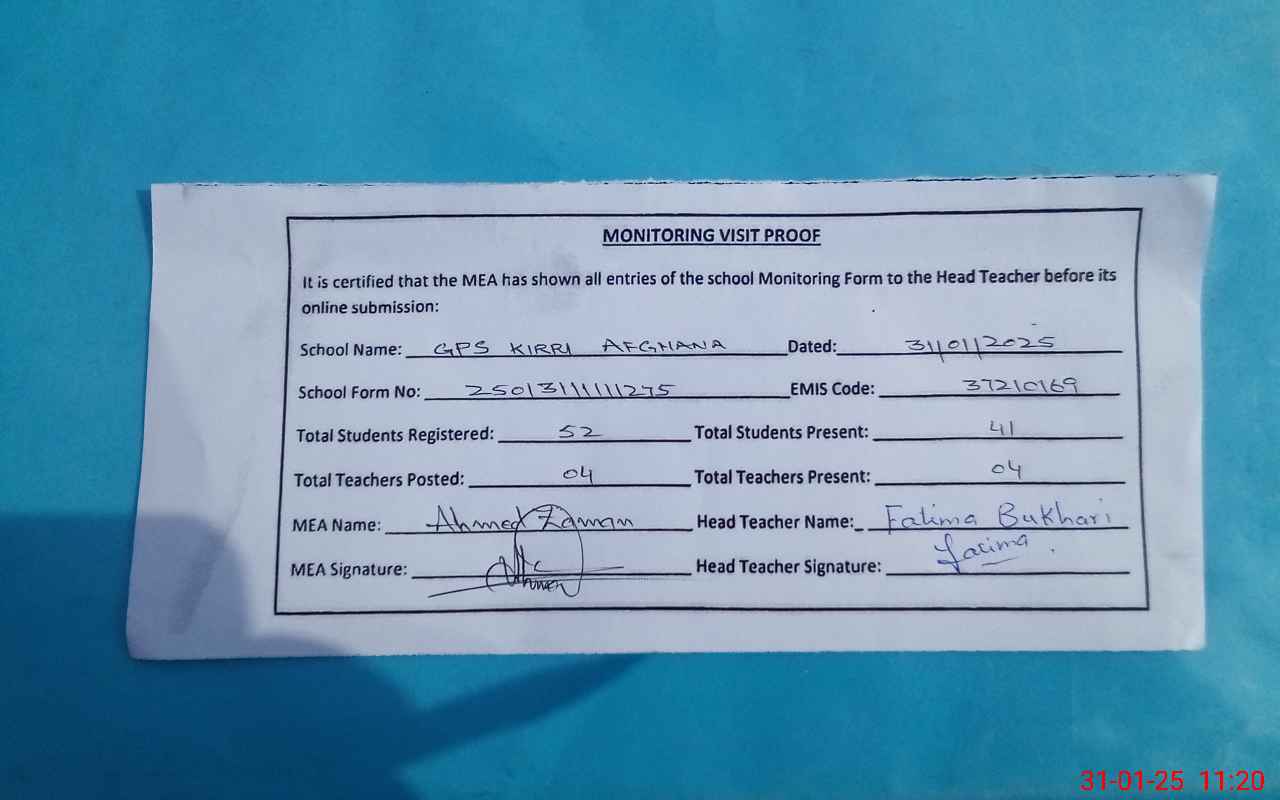 MONITORING VISIT PROOF
It is certified that the MEA has shown all entries of the school Monitoring Form to the Head Teacher before its
online submission:
School Name: GPS KIRRI AFGHANA Dated: 31/01/2025
School Form No: 25013111111275 EMIS Code: 37210169
Total Students Registered: 52 Total Students Present: 41
Total Teachers Posted: 04 Total Teachers Present: 04
MEA Name: Ahmed Zaman Head Teacher Name: Fatima Bukhari
MEA Signature: Head Teacher Signature:
31-01-25 11:20